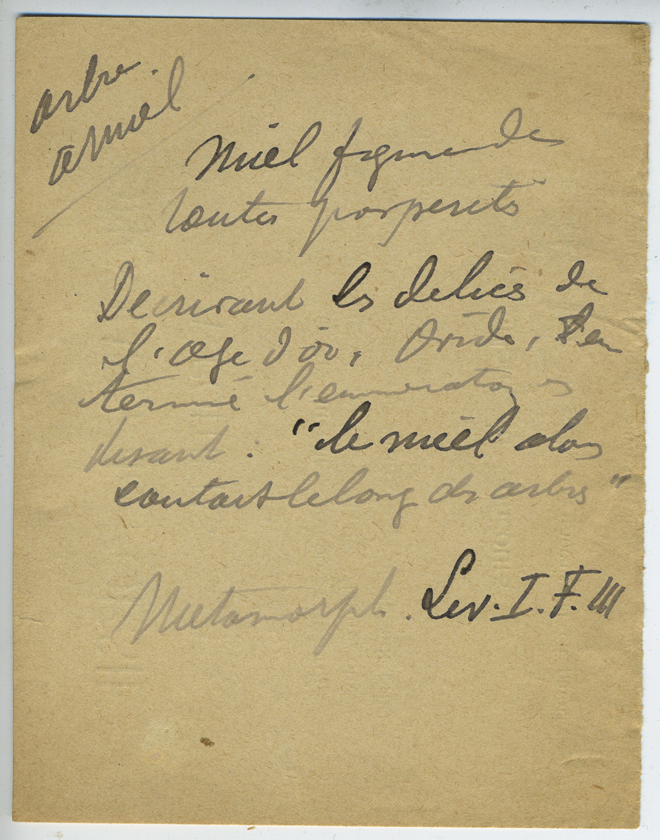 arbre.
a miel
Miel figure des
toutes prosperités
Decrivant les delices de
l'age d'or, Ovide,
termine l'enumeration en
disant : "le miel alors
coulait le long des arbres"
Metamorph. Liv. I. F. III